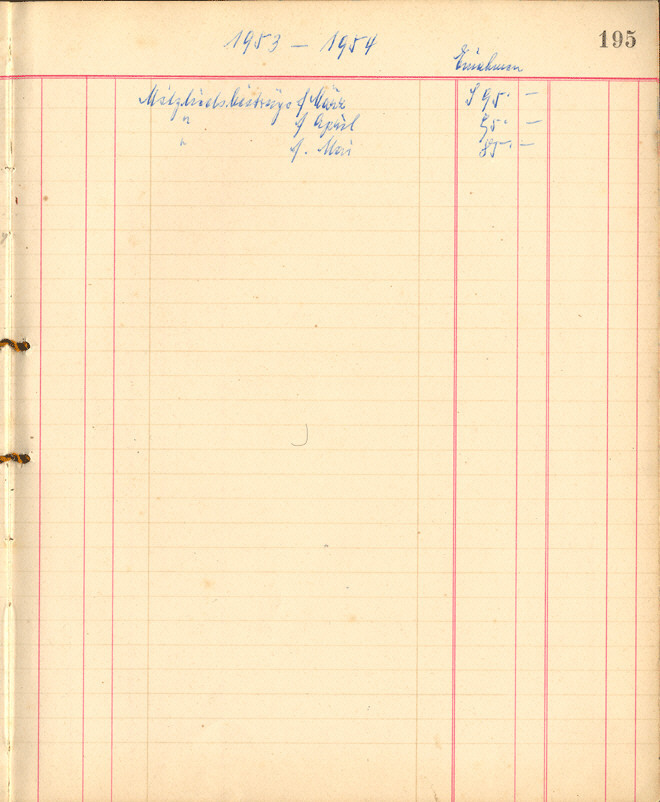 195
1953 – 1954
Einnahmen
Mitgliedsbeiträge f März S 95.–
" f April 95.–
" f. Mai 85.–